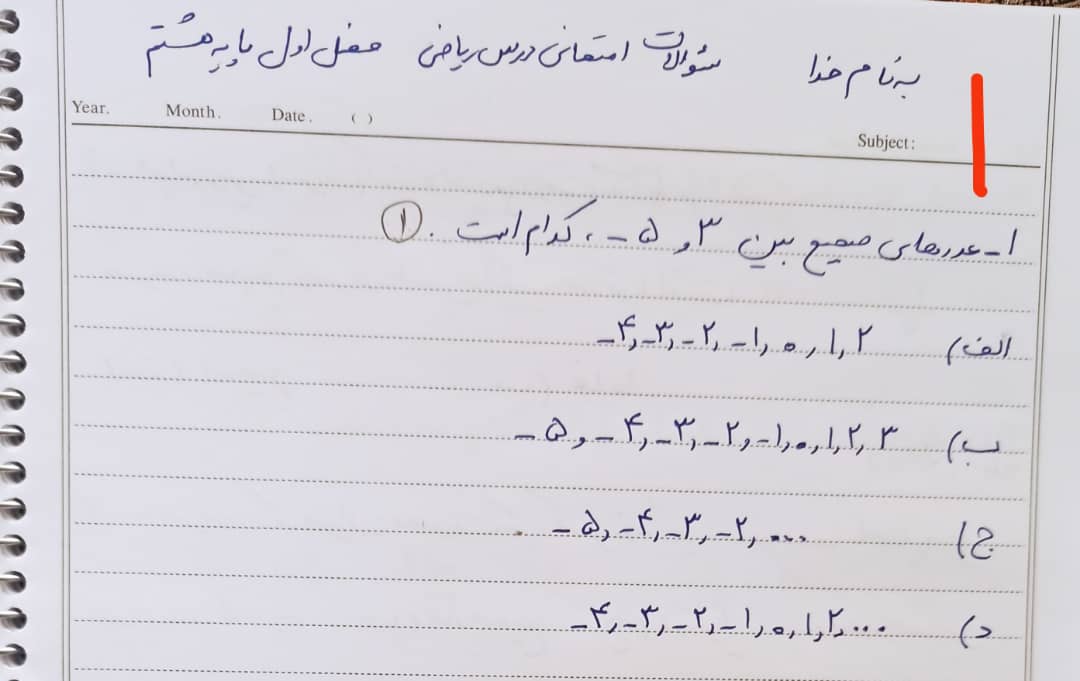 به نام خدا سؤالات امتحانی درس ریاضی فصل اول پایه هشتم
Year. Month. Date. ( )
Subject:
۱- عددهای صحیح بین ۳ و ۵- ، کدام است . ①
الف) -۴, -۳, -۲, -۱, ۰, ۱, ۲
ب) -۵, -۴, -۳, -۲, -۱, ۰, ۱, ۲, ۳
ج) -۵, -۴, -۳, -۲, ...
د) -۴, -۳, -۲, -۱, ۰, ۱, ۲, ...